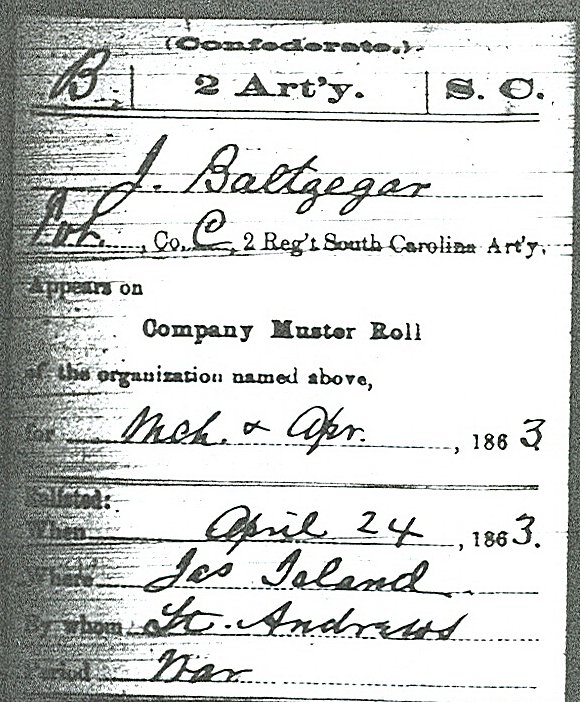 (Confederate.)
B. | 2 Art'y. | S. C.
J. Baltzegar
Pvt., Co. C, 2 Reg't South Carolina Art'y.
Appears on
Company Muster Roll
of the organization named above,
for Mch. & Apr., 1863.
Enlisted:
When April 24, 1863.
Where Jas Island
By whom Lt. Andrews
Period War